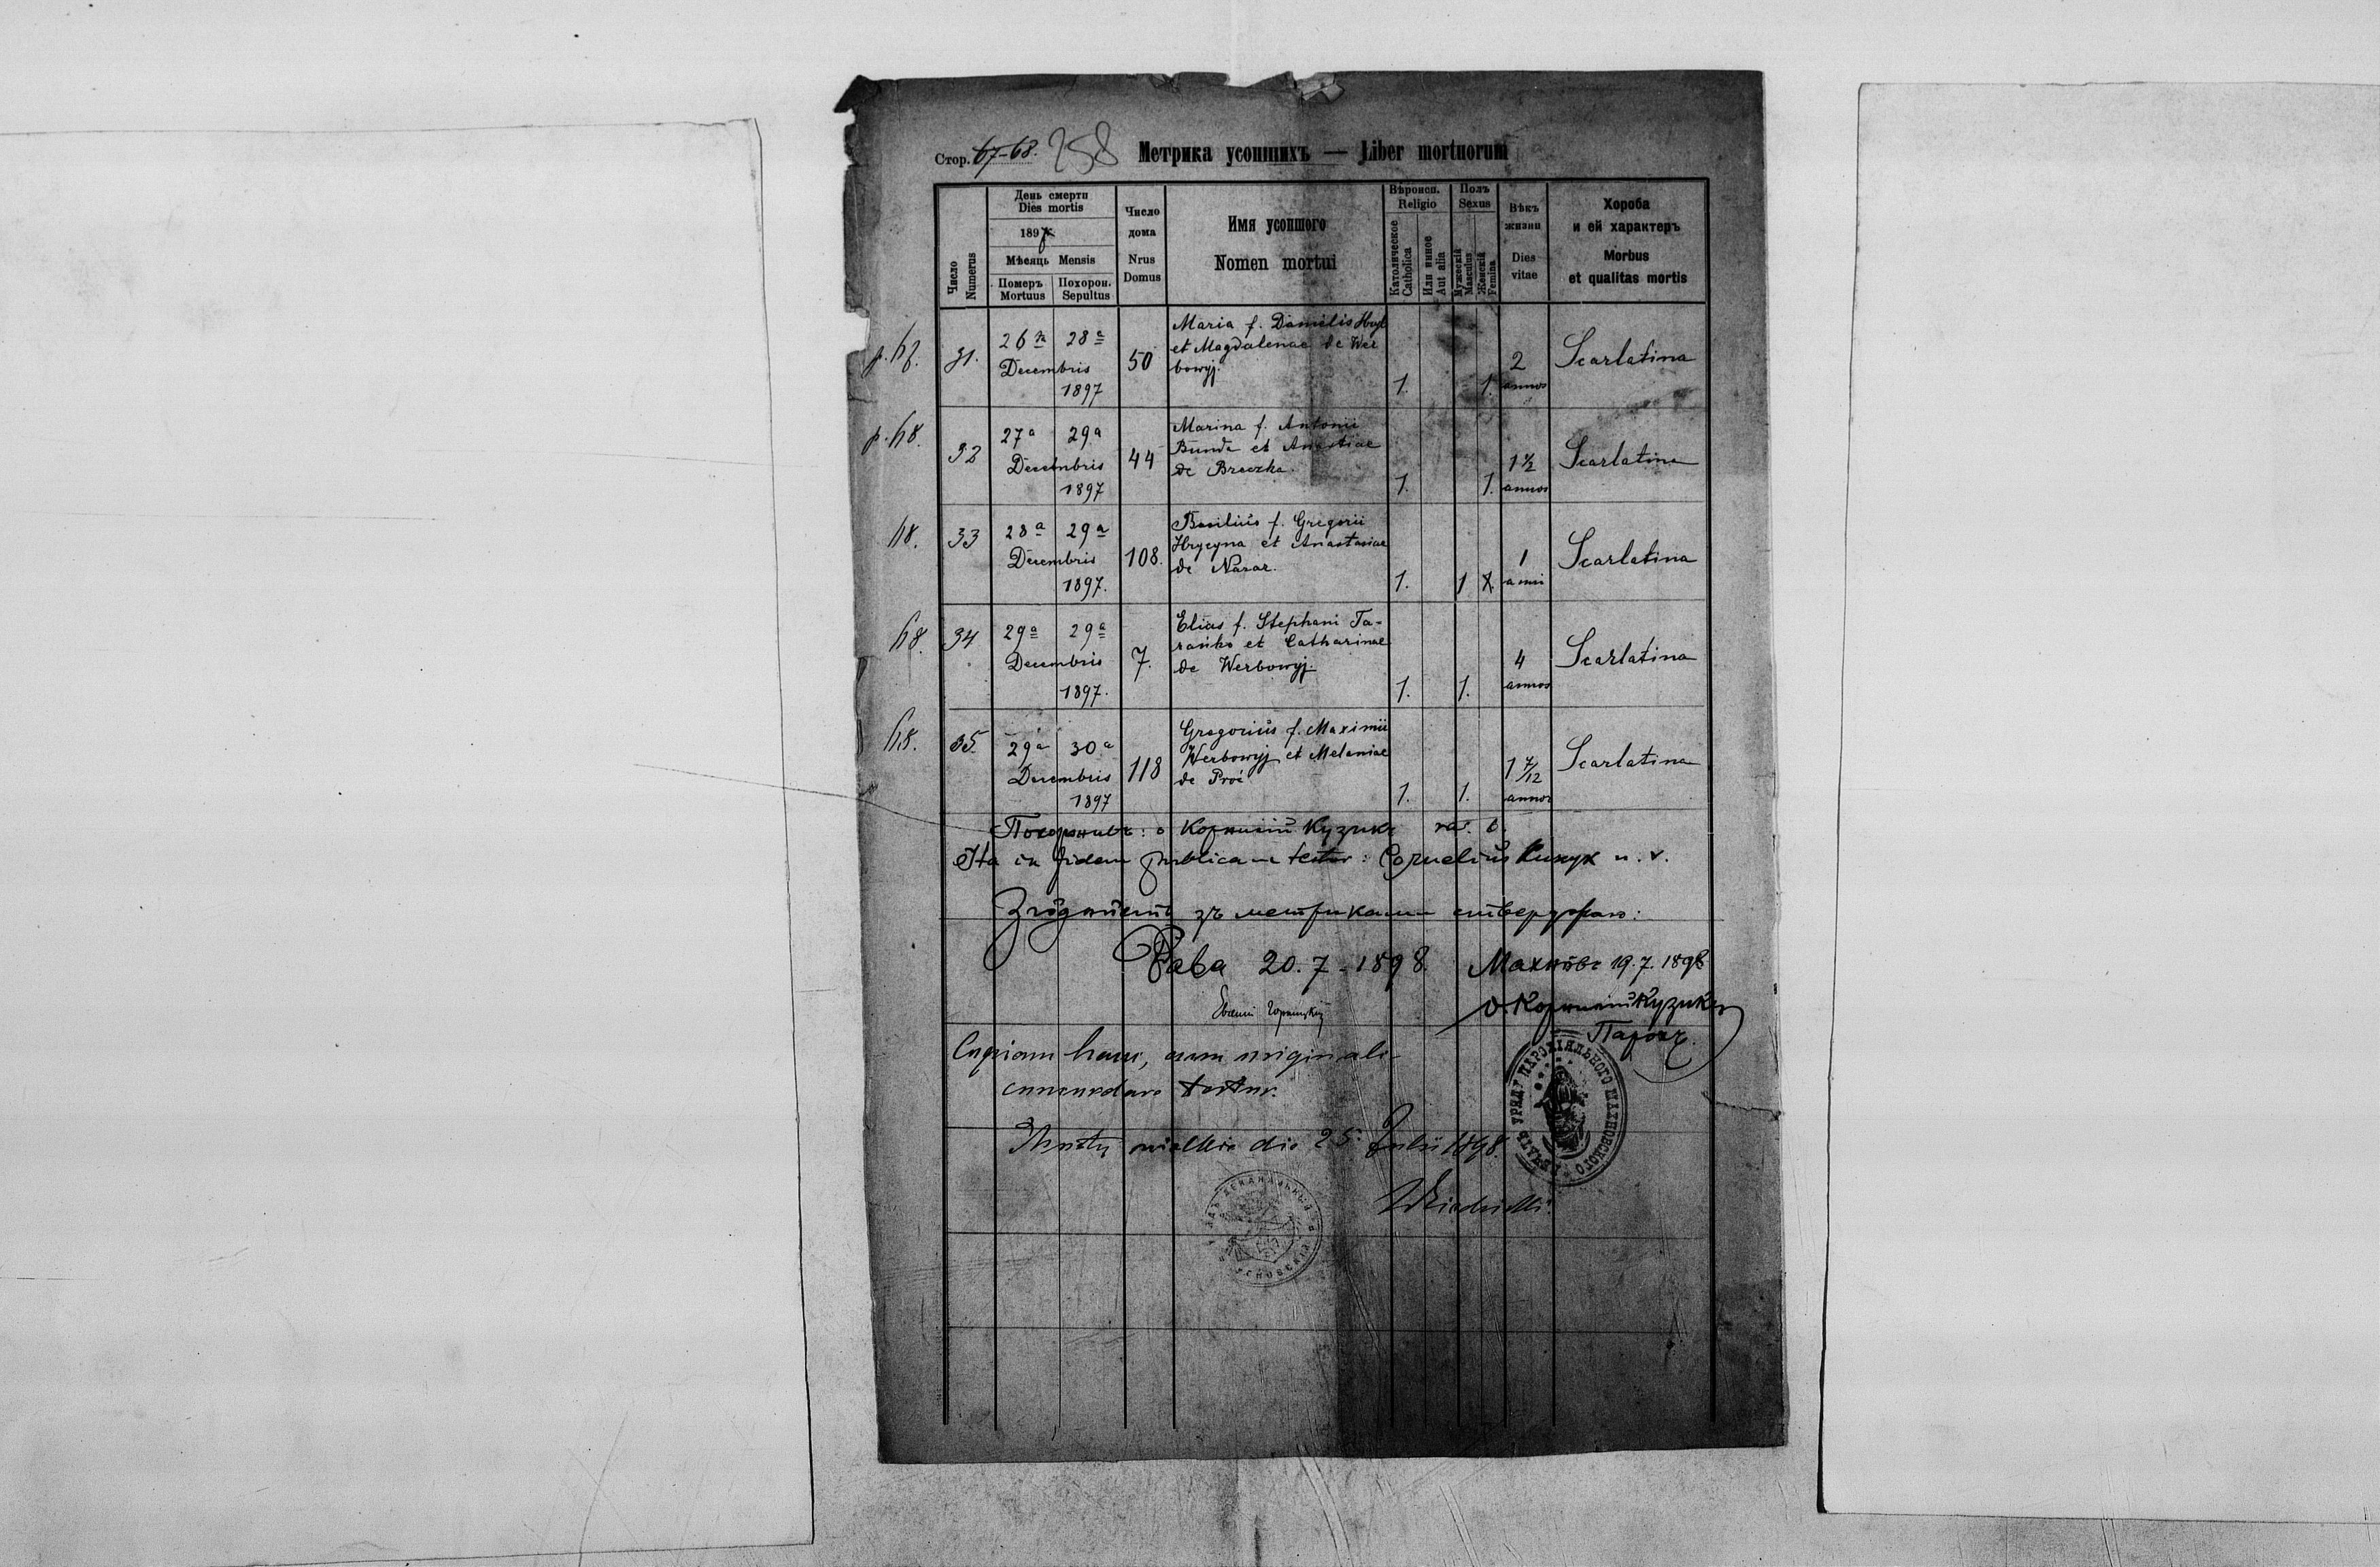 Стор. 67-68. 258 Метрика усопшихъ — Liber mortuorum
Число Numerus
День смерти
Dies mortis
1897
Мѣсяць Mensis
Померъ Mortuus
Похорон. Sepultus
Число дома
Nrus Domus
Имя усопшого
Nomen mortui
Вѣроисп. Religio
Католическое Catholica
Или инное Aut alia
Полъ Sexus
Мужескій Masculus
Женскій Femina
Вѣкъ жизни
Dies vitae
Хороба и ей характеръ
Morbus et qualitas mortis
p. 67. 31. 26 28a 50 Maria f. Danielis
et Magdalenae de Wer
bowyj.
Decembris
1897
1. 1. 2 annos Scarlatina
p. 68. 32 27a 29a 44 Marina f. Antonii
Bunda et Anastiae
de Breczka.
Decembris
1897
1. 1. 1 1/2 annos Scarlatina
68. 33 28a 29a 108. Basilius f. Gregorii
Hrycyna et Anastasiae
de Nazar.
Decembris
1897.
1. 1 1 anni Scarlatina
68. 34 29a 29a 7. Elias f. Stephani Ta-
rańko et Catharinae
de Werbowyj.
Decembris
1897.
1. 1. 4 annos Scarlatina
68. 35. 29a 30a 118 Gregorius f. Maximii
Werbowyj et Melaniae
de Proć
Decembris
1897
1. 1. 1 7/12 annos Scarlatina
Похоронивъ: о Корнилій Кузикъ
Ita in fidem publicam testor: Cornelius Kuzyk
зъ метриками стверджаю:
Рава 20.7-1898. Махнôвъ 19.7.1898
о. Корнилій Кузикъ
Парохъ.
Copiam hanc, cum originali
concordare testor.
die 25. Julii 1898.
ПЕЧАТЬ УРЯДУ ПАРОХІЯЛЬНОГО МАХНОВСКОГО